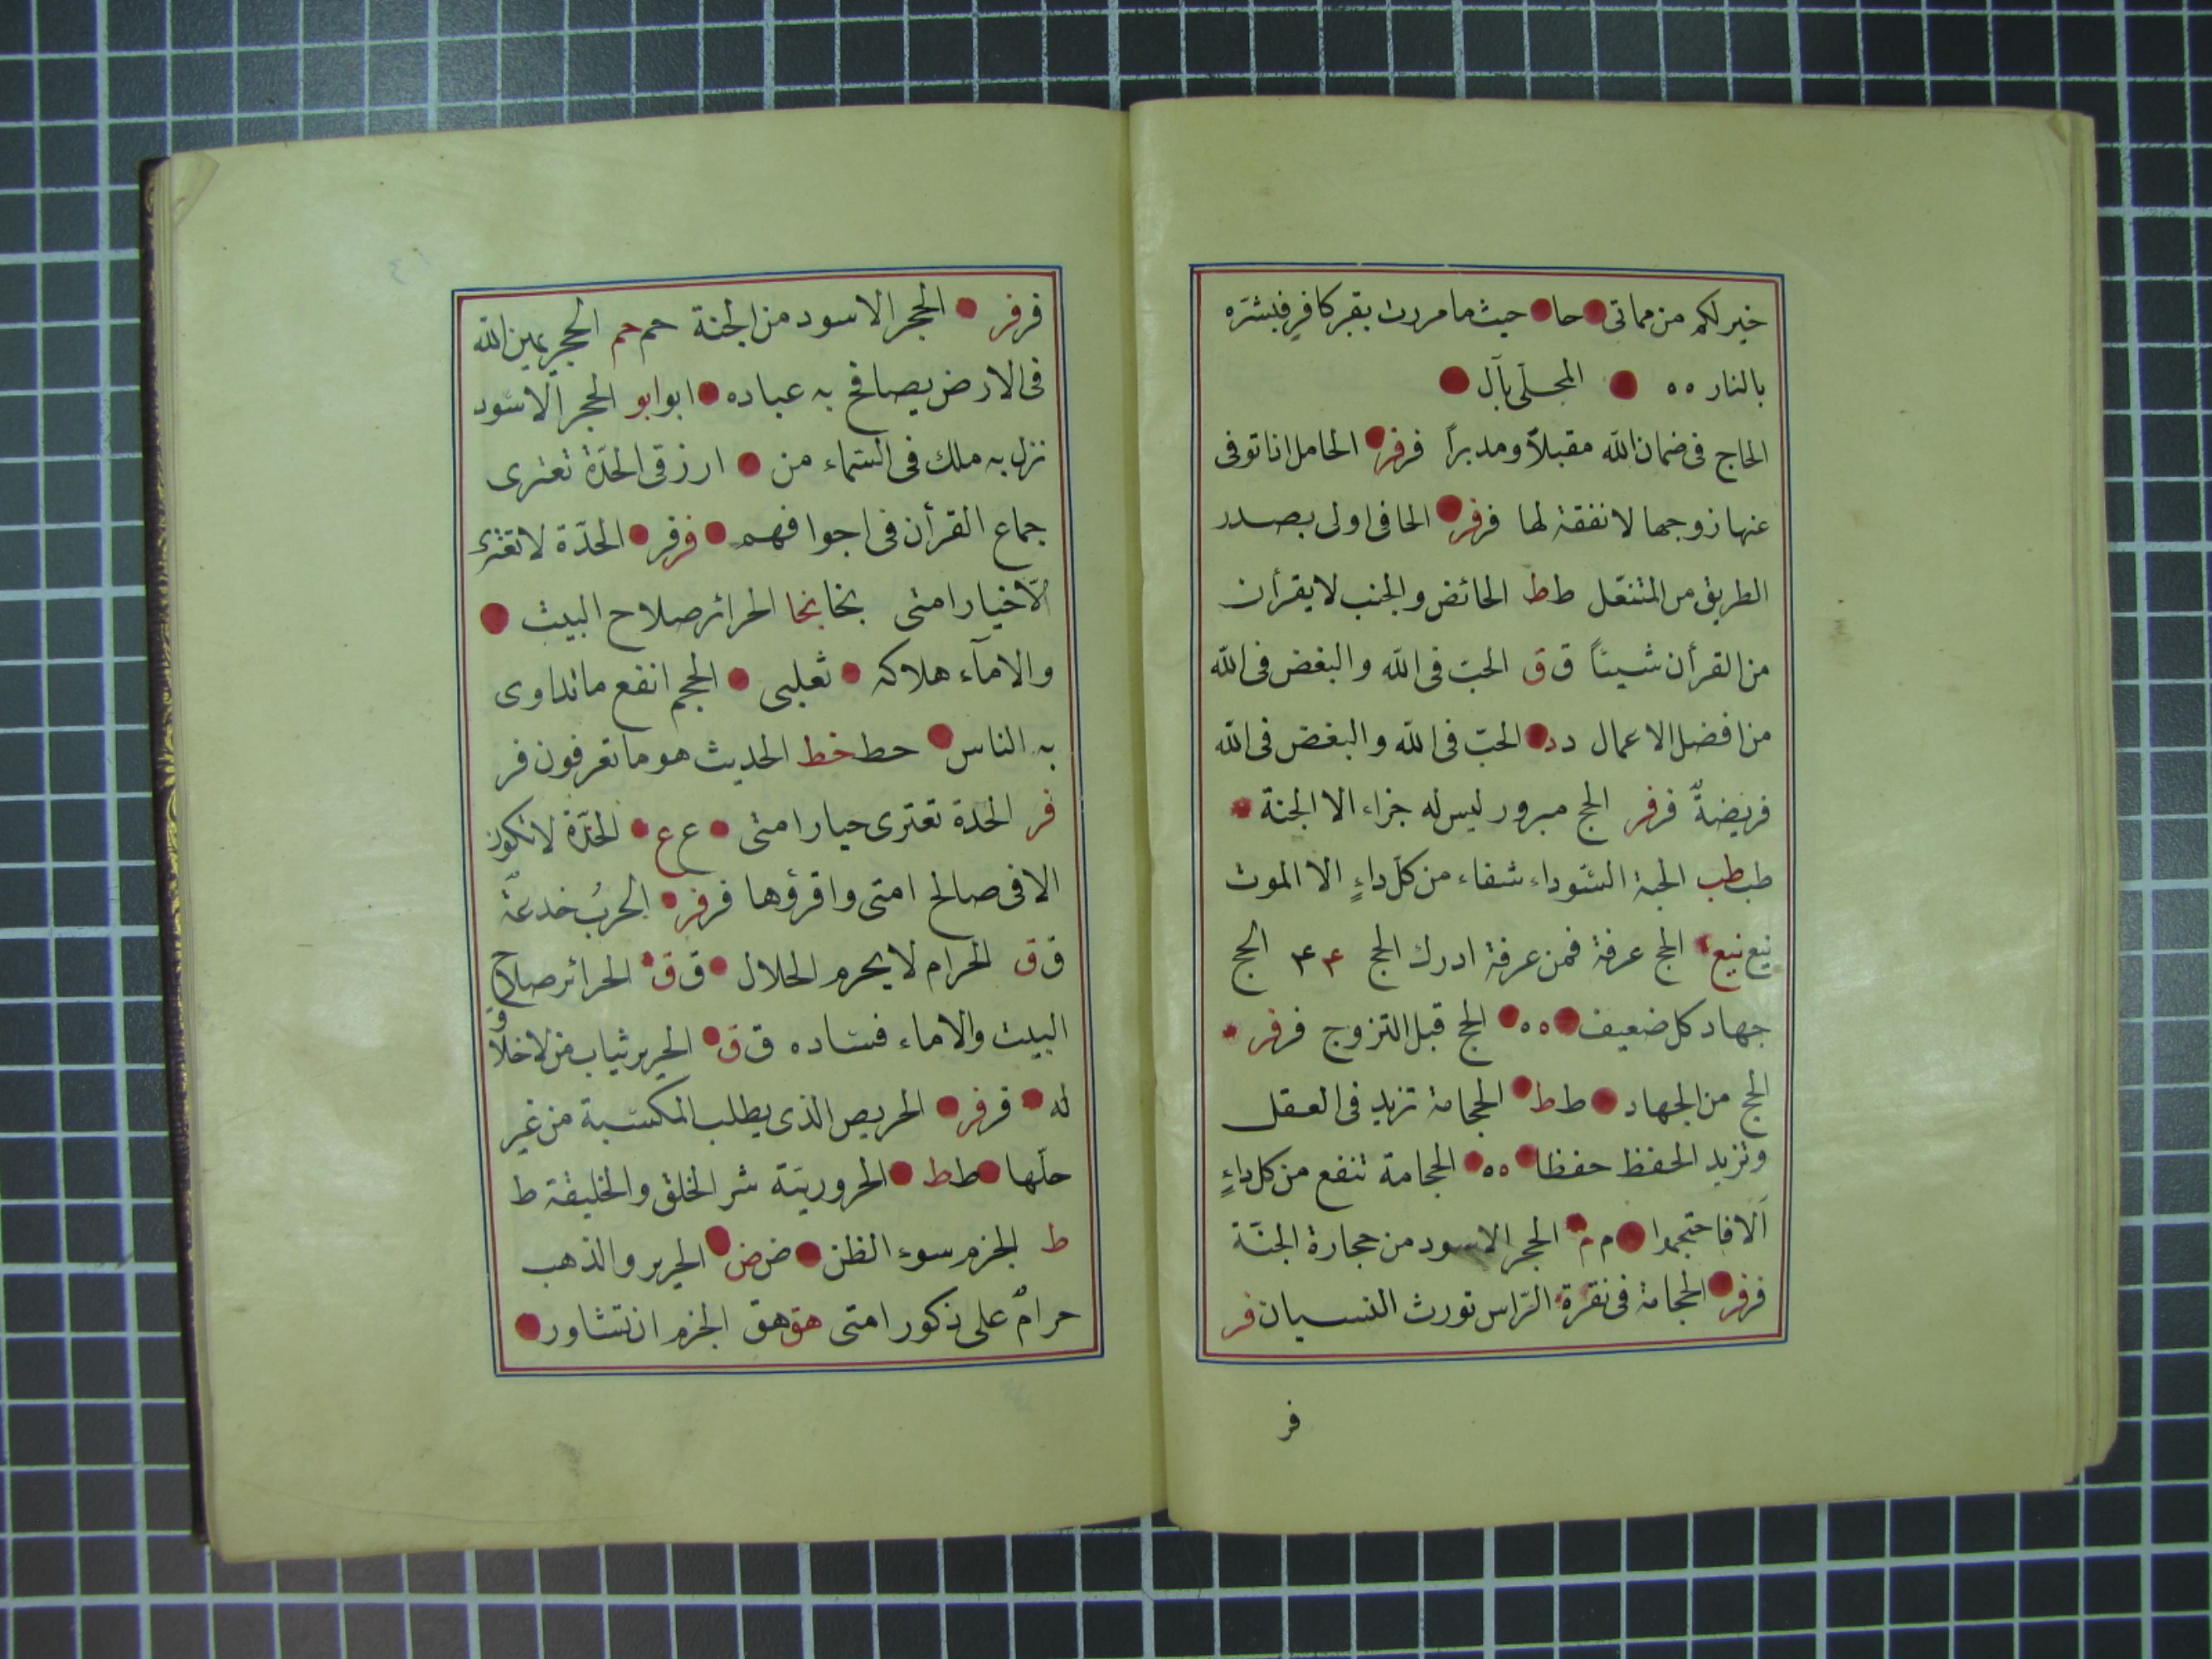 خير لكم من مماتى حا حيث ما مررت بقبر كافر فبشره
بالنار ٥٥ المجلى بآل
الحاج فى ضمان الله مقبلاً ومدبراً فرفر الحامل اذا توفى
عنها زوجها لا نفقة لها فرفر الحافى اولى بصدر
الطريق من المتنعّل طط الحائض والجنب لا يقرأن
من القرأن شيئاً ق ق الحبّ فى الله والبغض فى الله
من افضل الاعمال دد الحبّ فى الله والبغض فى الله
فريضةٌ فرفر الحج مبرور ليس له جزاء الا الجنة
طب طب الحبة السّوداء شفاء من كل داءٍ الا الموت
نيع نيع الحج عرفة فمن عرفة ادرك الحج ٤٤ الحج
جهاد كل ضعيف ٥٥ الحج قبل التزوج فرفر
الحج من الجهاد طط الحجامة تزيد فى العقل
وتزيد الحفظ حفظا ٥٥ الحجامة تنفع من كل داءٍ
ألا فاحتجموا م م الحجر الاسود من حجارة الجنّة
فرفر الحجامة فى نقرة الرّاس تورث النسيان فر
فر
فرفر الحجر الاسود من الجنة حم حم الحجر يمين الله
فى الارض يصافح به عباده ابو ابو الحجر الاسود
نزل به ملك فى السّماء من ارزقى الحدّة تعترى
جماع القرأن فى اجوافهم فرفر الحدّة لا تعترى
الّا خيار امتى بخا بخا الحرائر صلاح البيت
والاماء هلاكه ثعلبى الحجم انفع ما تداوى
به الناس حط خط الحديث هو ما تعرفون فر
فر الحدة تعترى حيار امتى ع ع الحدّة لا تكون
الا فى صالح امتى واقرؤها فرفر الحربُ خدعةٌ
ق ق الحرام لا يحرم الحلال ق ق الحرائر صلاح
البيت والاماء فساده ق ق الحرير ثياب من لا خلاق
له فرفر الحريص الذى يطلب المكسبة من غير
حلّها طط الحروريّة شر الخلق والخليقة ط
ط الحزم سوء الظن ض ض الحرير والذهب
حرامٌ على ذكور امتى هق هق الحزم ان تشاور